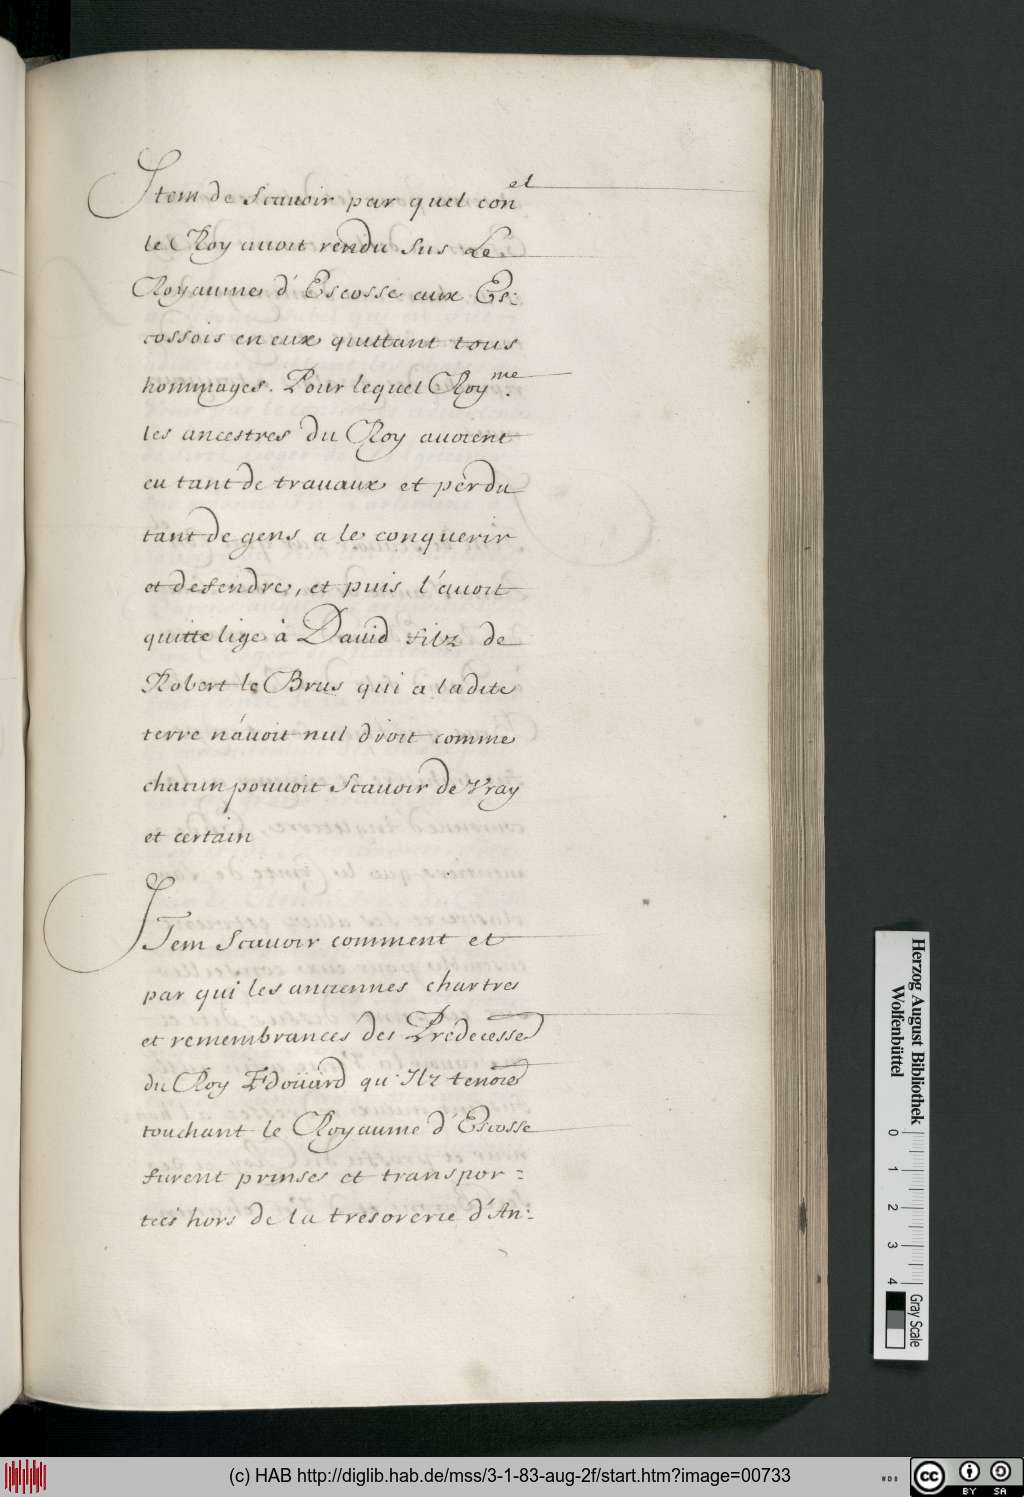 Item de Scauoir par quel con^el
le Roy auoit rendu Sus Le
Royaume d'Escosse aux Es:
cossois en eux quittant tous
hommages. Pour lequel Roy.^me
les ancestres du Roy auoient
eu tant de trauaux et perdu
tant de gens a le conquerir
et defendre, et puis l'auoit
quitte lige à Dauid filz de
Robert le Brus qui a ladite
terre n'auoit nul droit comme
chacun pouuoit Scauoir de Vray
et certain
ITem Scauoir comment et
par qui les anciennes chartres
et remembrances des Predecesse
du Roy Edoüard qu'Ilz tenoie
touchant le Royaume d'Escosse
furent prinses et transpor=
teés hors de la tresorerie d'An:
Herzog August Bibliothek
Wolfenbüttel
0 1 2 3 4
Gray Scale
(c) HAB http://diglib.hab.de/mss/3-1-83-aug-2f/start.htm?image=00733
WDB
cc BY SA